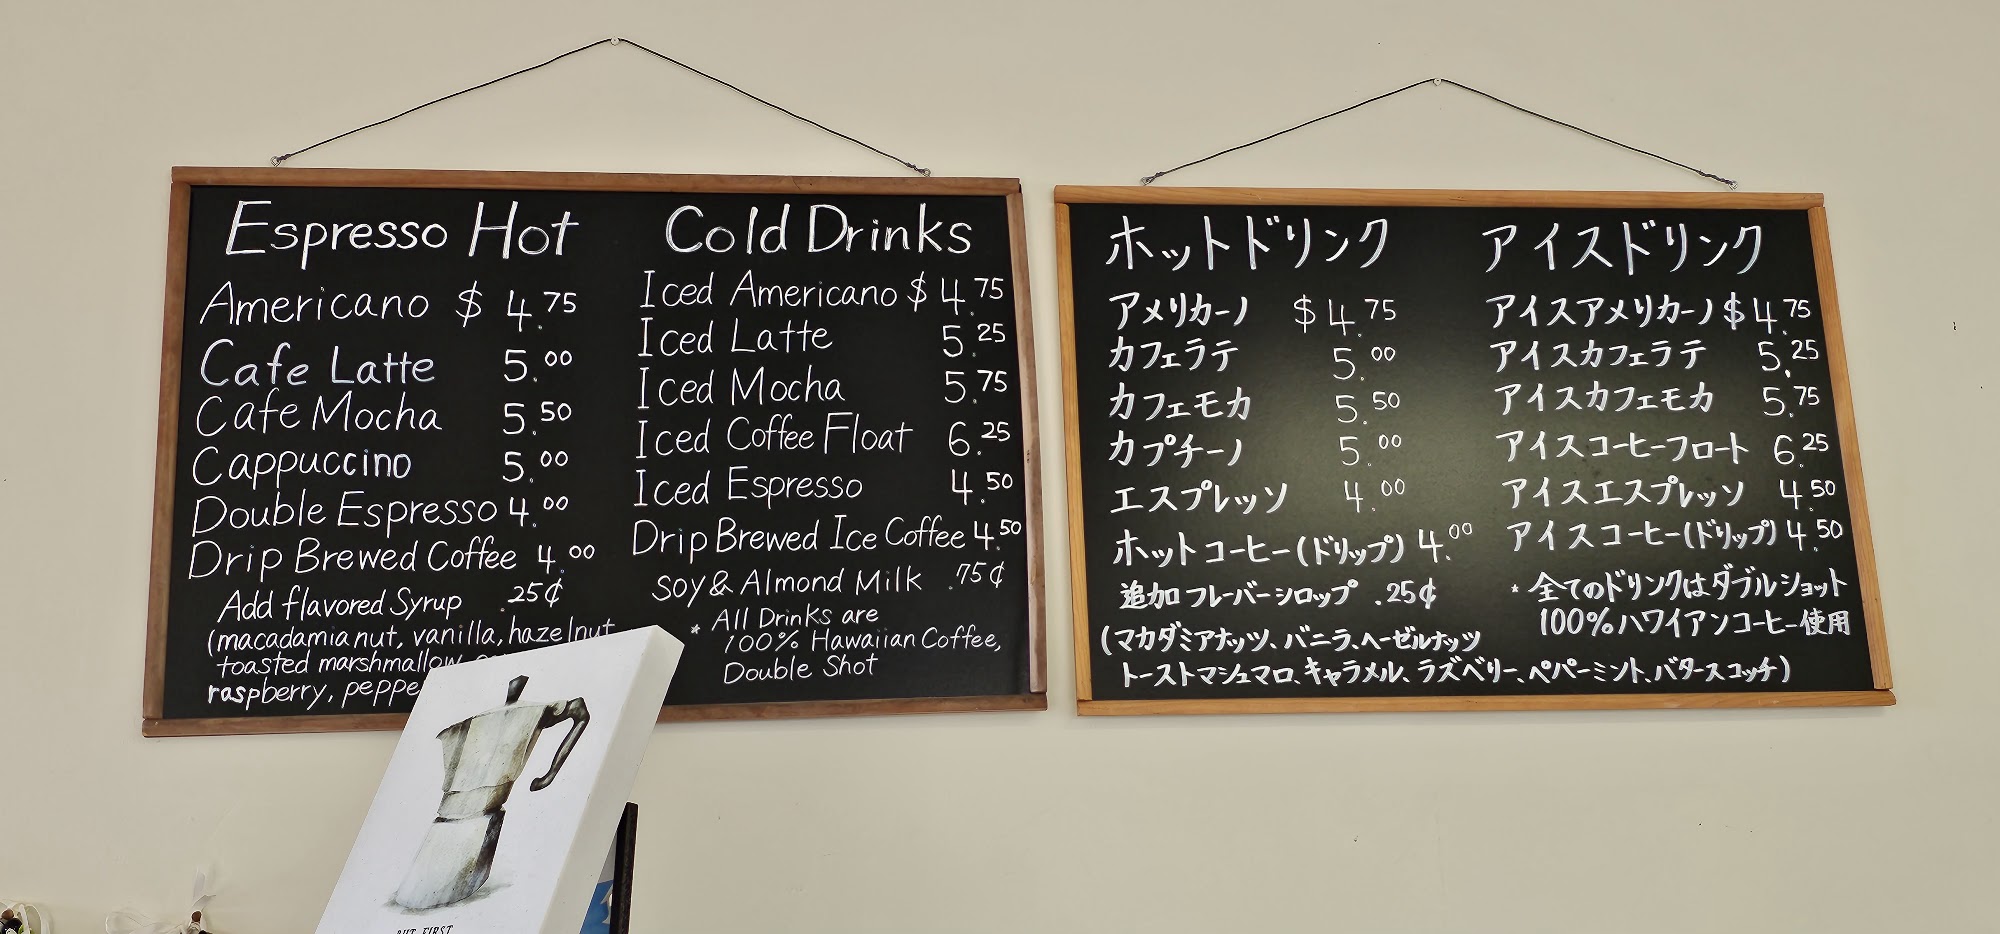 Espresso Hot
Americano $ 4.75
Cafe Latte 5.00
Cafe Mocha 5.50
Cappuccino 5.00
Double Espresso 4.00
Drip Brewed Coffee 4.00
Add flavored Syrup .25¢
(macadamia nut, vanilla, hazelnut
toasted marshmallow
raspberry,
Cold Drinks
Iced Americano $ 4.75
Iced Latte 5.25
Iced Mocha 5.75
Iced Coffee Float 6.25
Iced Espresso 4.50
Drip Brewed Ice Coffee 4.50
Soy & Almond Milk .75¢
* All Drinks are
100% Hawaiian Coffee,
Double Shot
ホットドリンク
アメリカーノ $ 4.75
カフェラテ 5.00
カフェモカ 5.50
カプチーノ 5.00
エスプレッソ 4.00
ホットコーヒー(ドリップ) 4.00
追加フレーバーシロップ .25¢
(マカダミアナッツ、バニラ、ヘーゼルナッツ
トーストマシュマロ、キャラメル、ラズベリー、ペパーミント、バタースコッチ)
アイスドリンク
アイスアメリカーノ $ 4.75
アイスカフェラテ 5.25
アイスカフェモカ 5.75
アイスコーヒーフロート 6.25
アイスエスプレッソ 4.50
アイスコーヒー(ドリップ) 4.50
* 全てのドリンクはダブルショット
100%ハワイアンコーヒー使用
BUT FIRST